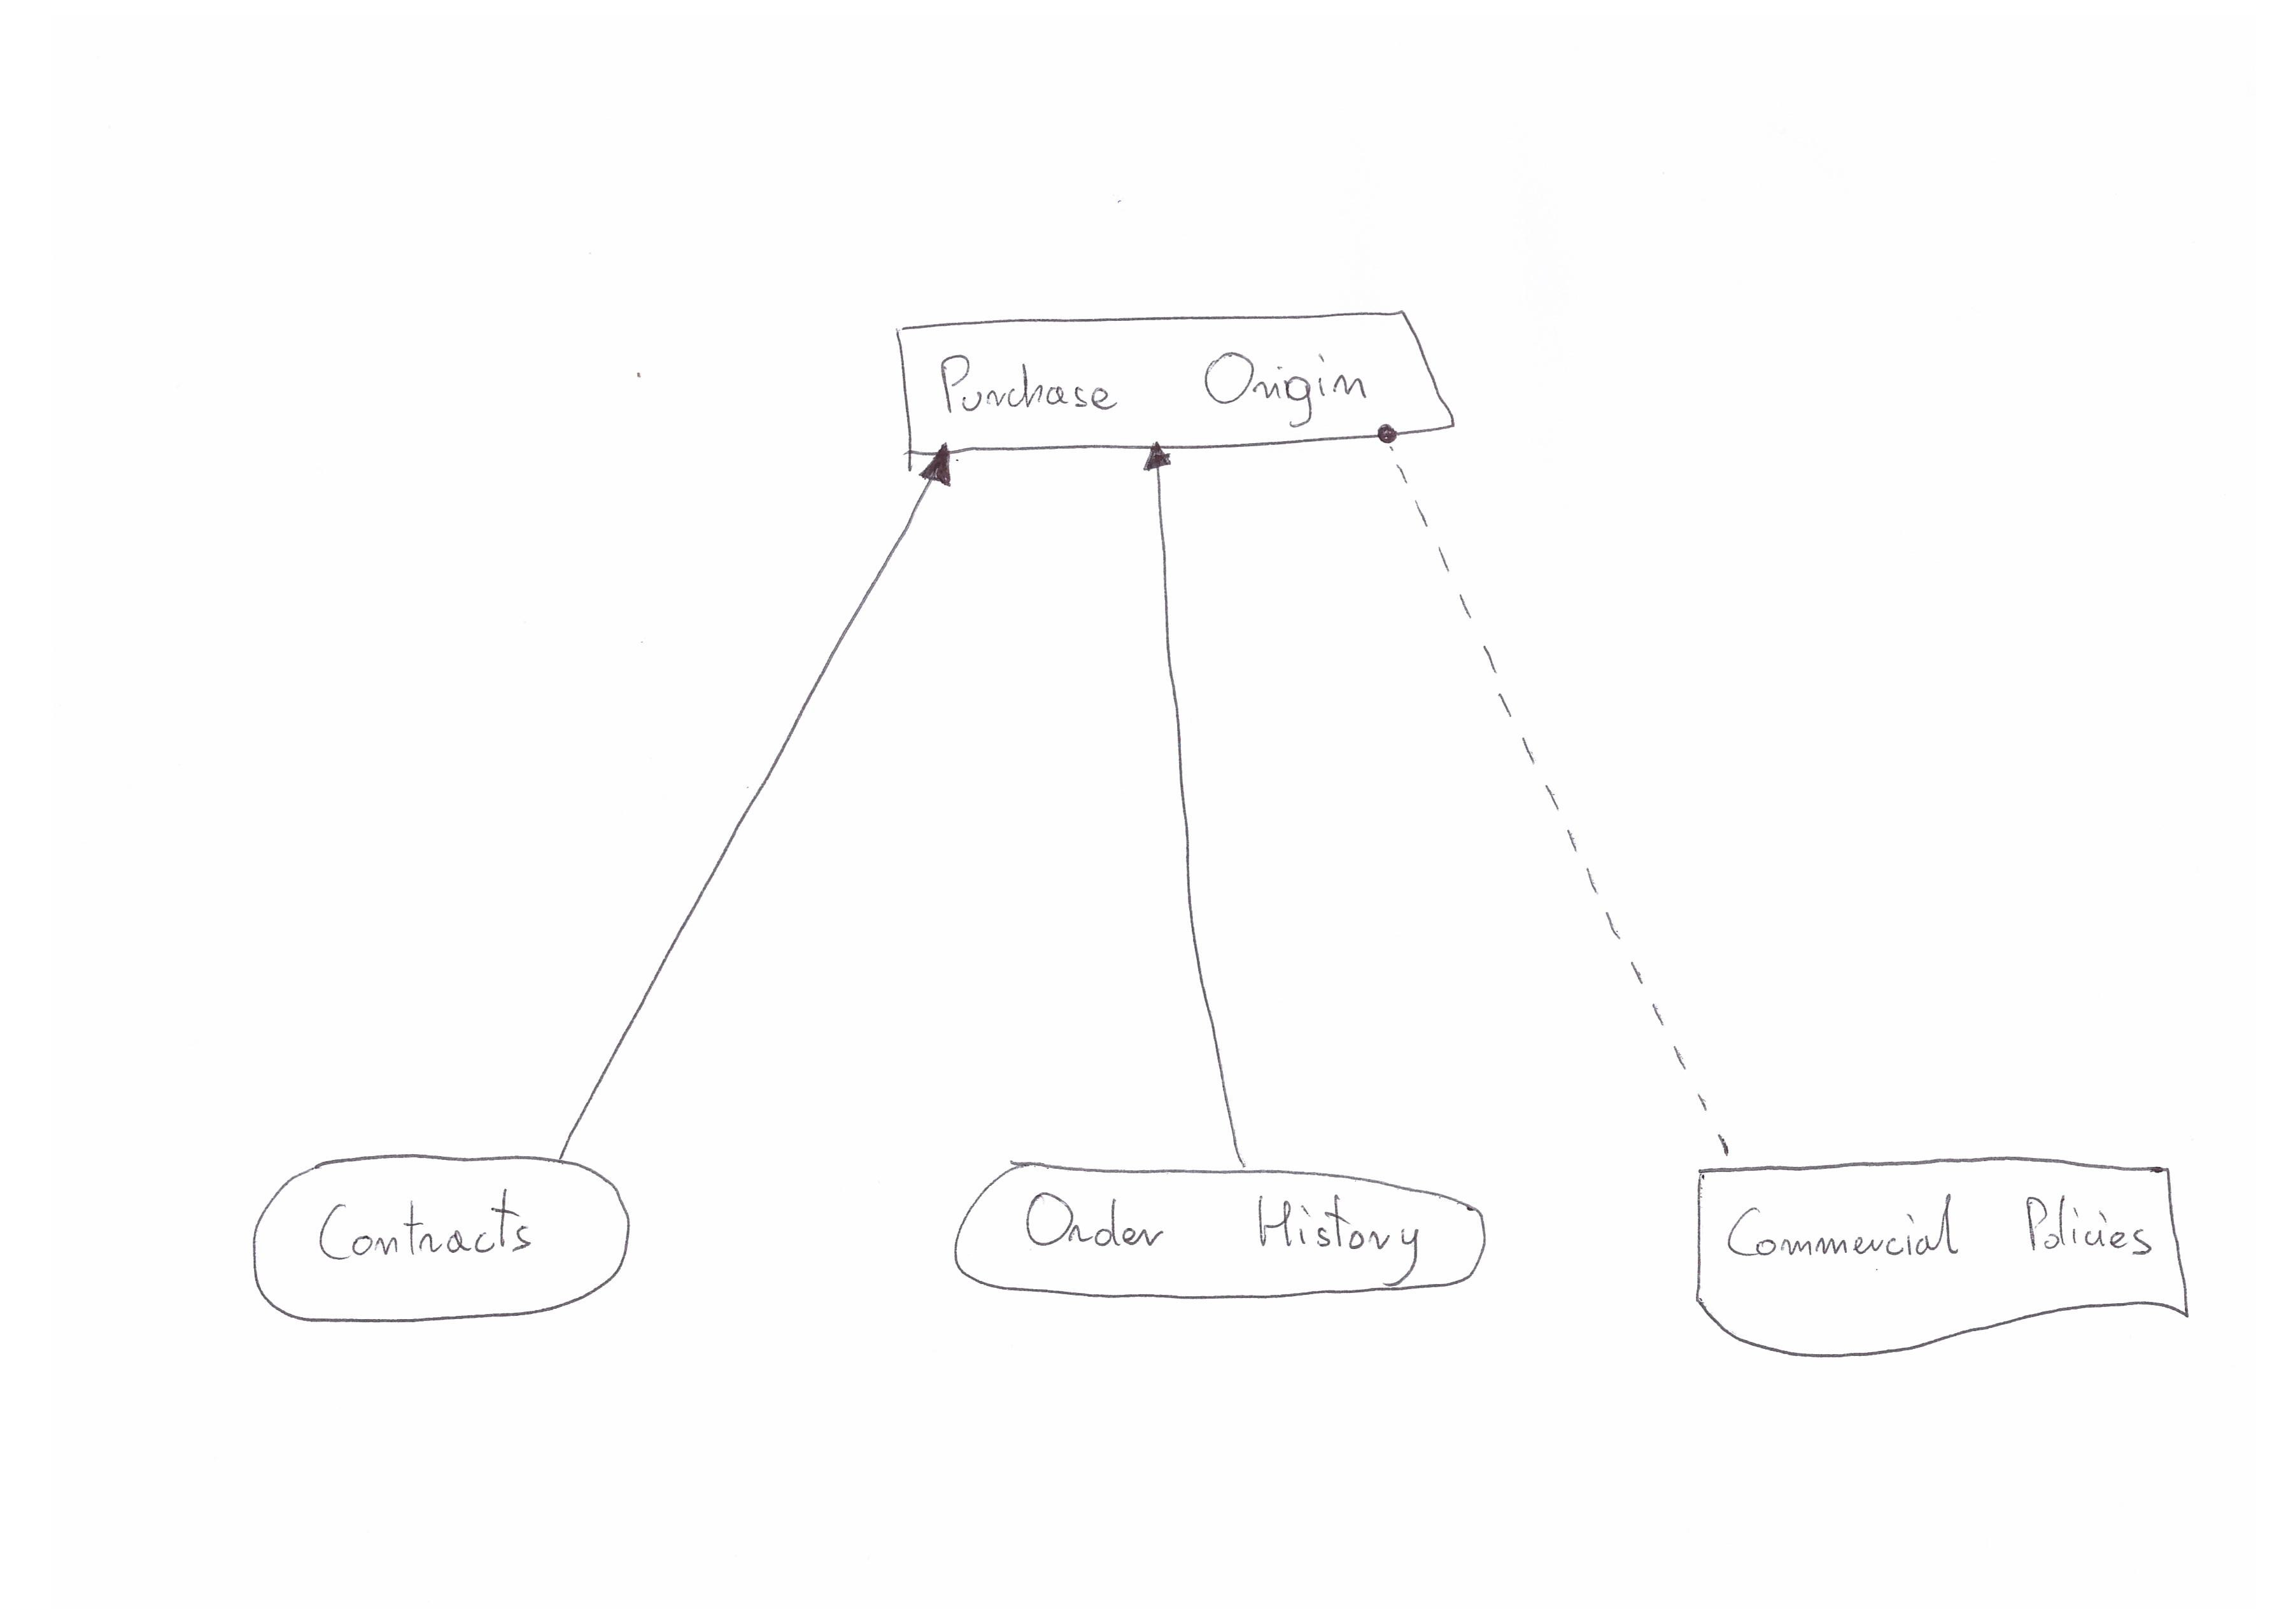 Purchase Origin
Contracts
Order History
Commercial Policies